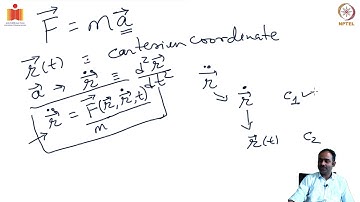 NPTEL
F⃗ = m a⃗
r⃗(t) ≡ cartesian coordinate
a⃗ → r⃗̈ ≡ d²r⃗/dt²
r⃗̈ = F⃗(r⃗, r⃗̇, t)/m
r⃗̈
r⃗̇ C₁ ✓
r⃗(t) C₂